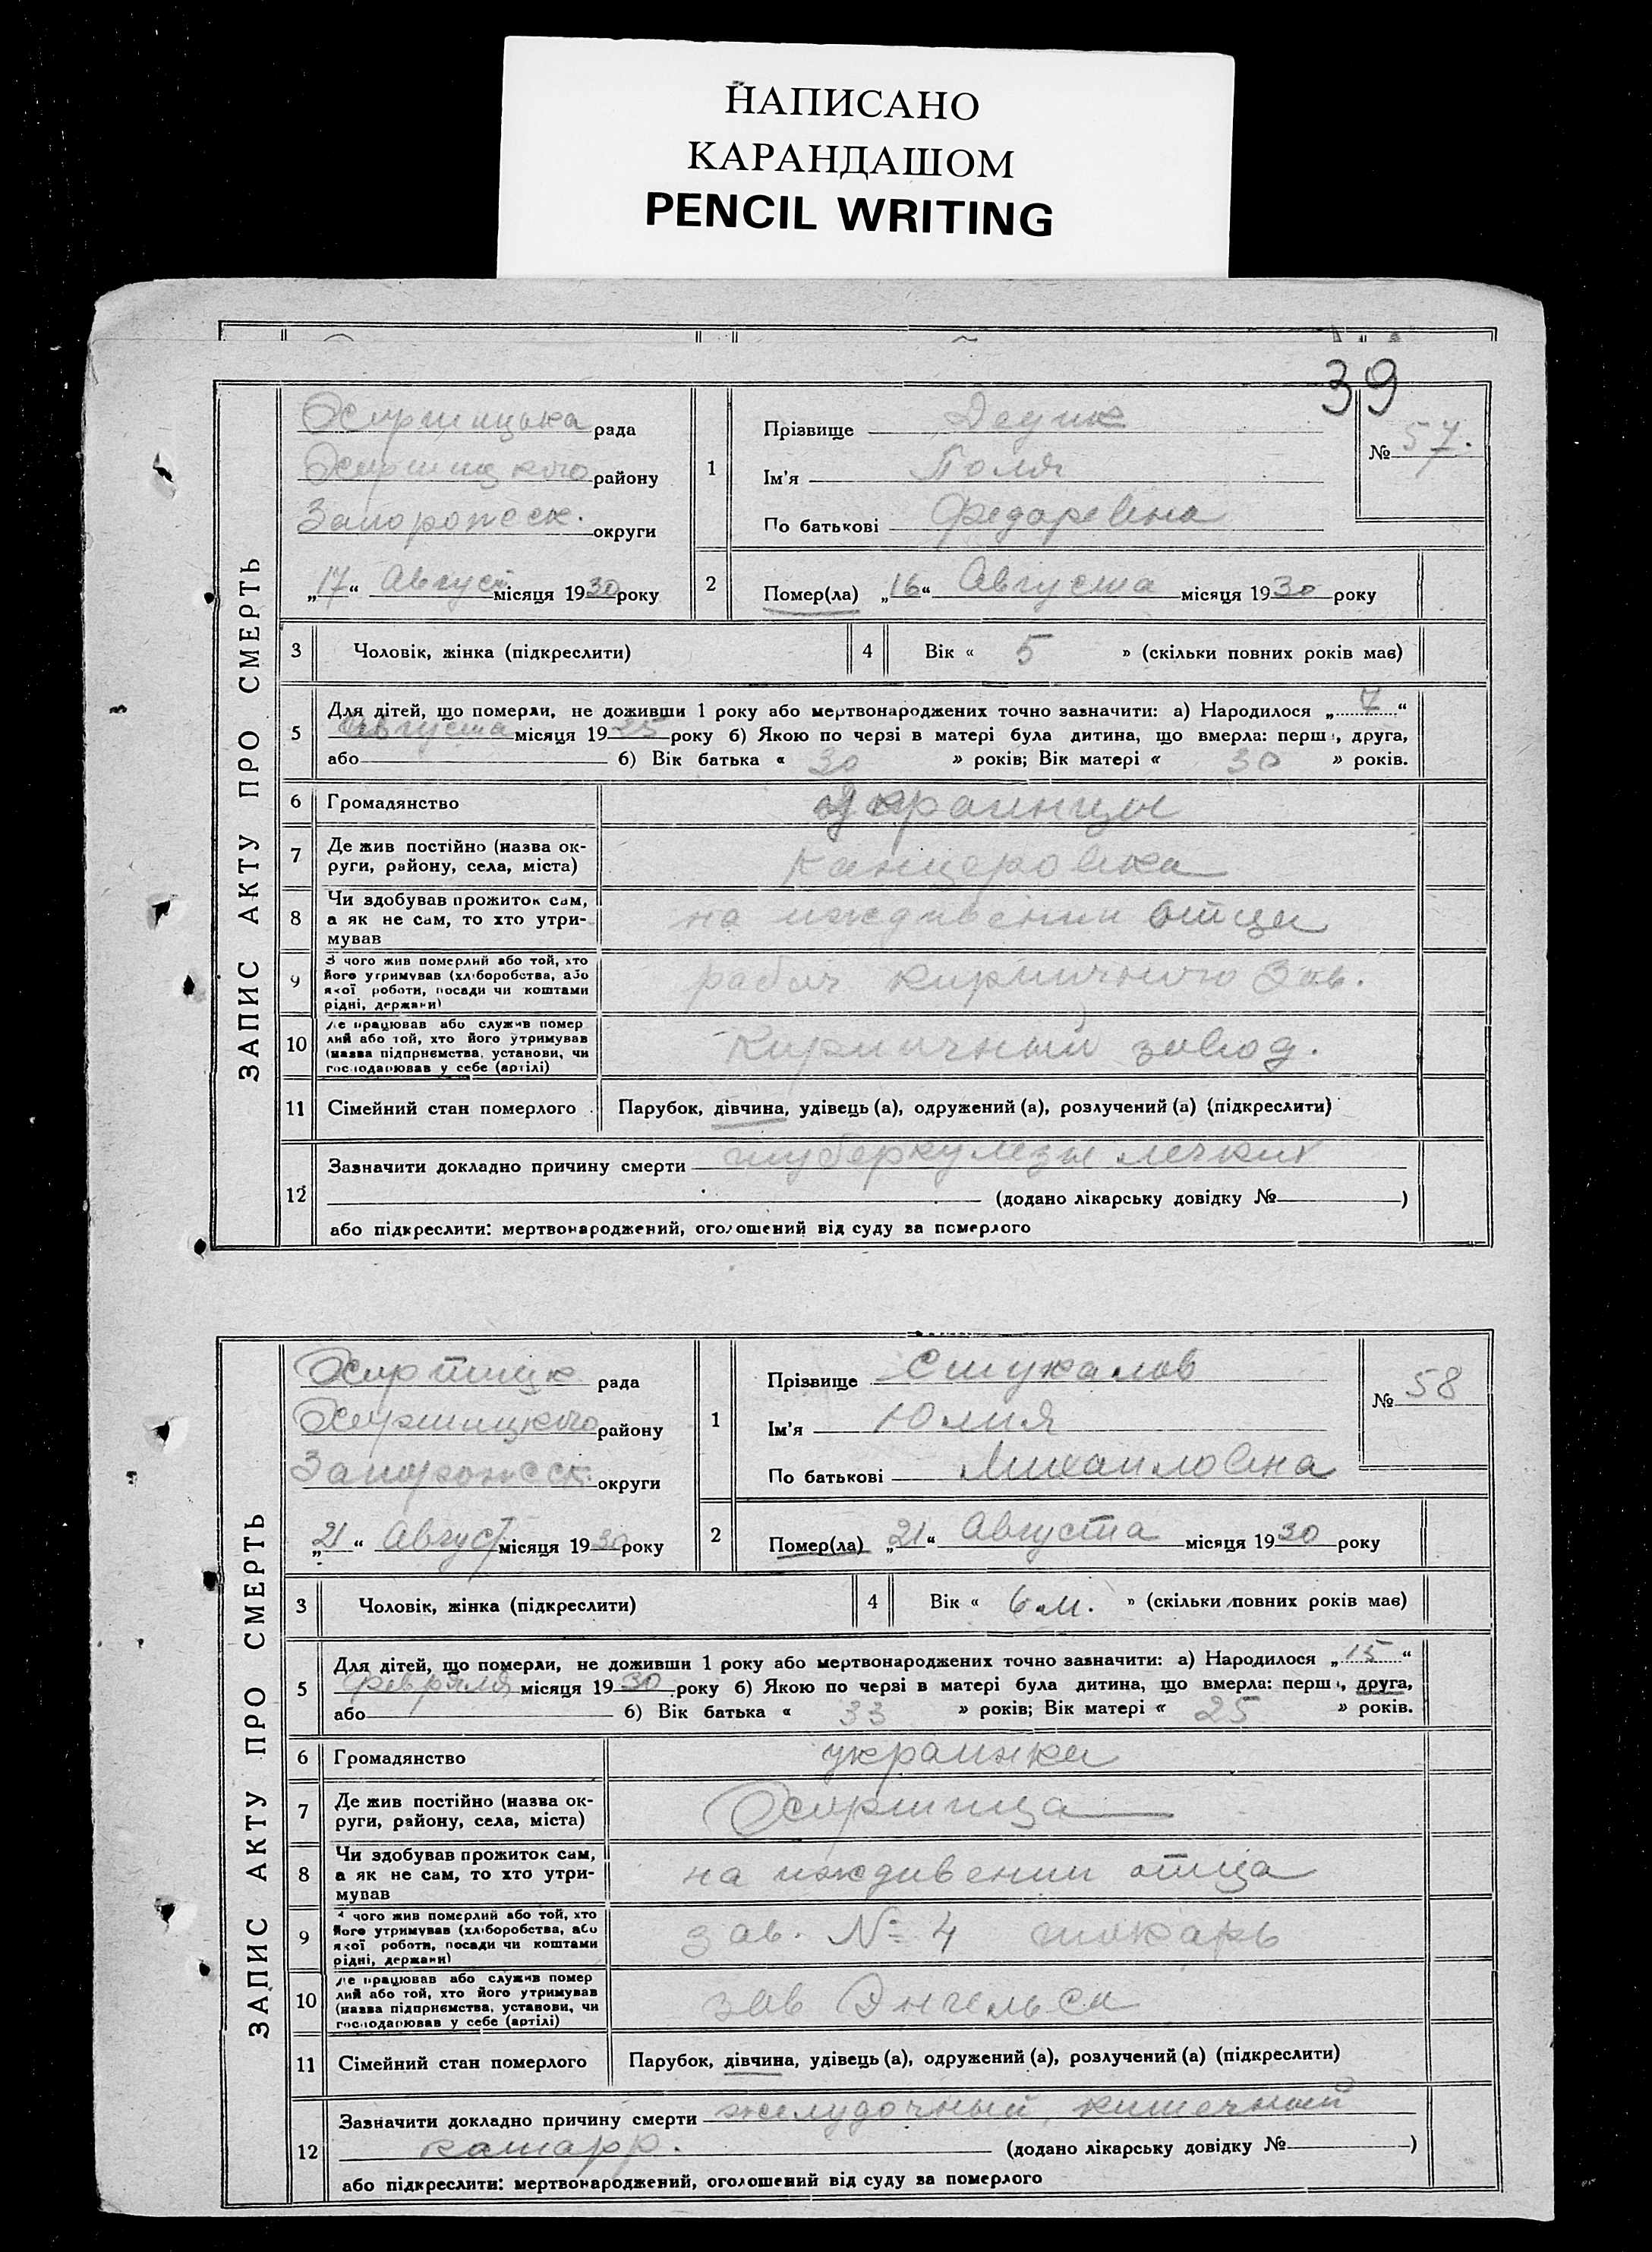 НАПИСАНО
КАРАНДАШОМ
PENCIL WRITING
39
ЗАПИС АКТУ ПРО СМЕРТЬ
Хортицька рада
Хортицкого району
Запорожск. округи
„17“ Август місяця 1930 року
1
Прізвище
Ім'я Поля
По батькові Федаревна
№ 57.
2 Помер(ла) „16“ Августа місяця 1930 року
3 Чоловік, жінка (підкреслити)
4 Вік « 5 » (скільки повних років має)
5 Для дітей, що померли, не доживши 1 року або мертвонароджених точно зазначити: а) Народилося „7“
Августа місяця 1925 року б) Якою по черзі в матері була дитина, що вмерла: перша, друга,
або б) Вік батька « 30 » років; Вік матері « 30 » років.
6 Громадянство Украинцы
7 Де жив постійно (назва ок-
руги, району, села, міста) Канцеровка
8 Чи здобував прожиток сам,
а як не сам, то хто утри-
мував на иждивении отца
9 З чого жив померлий або той, хто
його утримував (хліборобства, або
якої роботи, посади чи коштами
рідні, держави) рабоч кирпичного Зав.
10 Де працював або служив помер
лий або той, хто його утримував
(назва підприємства, установи, чи
господарював у себе (артілі) Кирпичный завод.
11 Сімейний стан померлого Парубок, дівчина, удівець (а), одружений (а), розлучений (а) (підкреслити)
12 Зазначити докладно причину смерти туберкулезы легких
(додано лікарську довідку № )
або підкреслити: мертвонароджений, оголошений від суду за померлого
ЗАПИС АКТУ ПРО СМЕРТЬ
Хортицк рада
Хортицкого району
Запорожск. округи
„21“ Август місяця 1930 року
1
Прізвище Стукалов
Ім'я Юлия
По батькові Михаиловна
№ 58
2 Помер(ла) „21“ Августа місяця 1930 року
3 Чоловік, жінка (підкреслити)
4 Вік « 6 м. » (скільки повних років має)
5 Для дітей, що померли, не доживши 1 року або мертвонароджених точно зазначити: а) Народилося „15“
Февраля місяця 1930 року б) Якою по черзі в матері була дитина, що вмерла: перша, друга,
або б) Вік батька « 33 » років; Вік матері « 25 » років.
6 Громадянство украинка
7 Де жив постійно (назва ок-
руги, району, села, міста) Хортица
8 Чи здобував прожиток сам,
а як не сам, то хто утри-
мував на иждивении отца
9 З чого жив померлий або той, хто
його утримував (хліборобства, або
якої роботи, посади чи коштами
рідні, держави) зав. № 4 токарь
10 Де працював або служив помер
лий або той, хто його утримував
(назва підприємства, установи, чи
господарював у себе (артілі) зав Энгельса
11 Сімейний стан померлого Парубок, дівчина, удівець (а), одружений (а), розлучений (а) (підкреслити)
12 Зазначити докладно причину смерти желудочный кишечный
катарр.
(додано лікарську довідку № )
або підкреслити: мертвонароджений, оголошений від суду за померлого